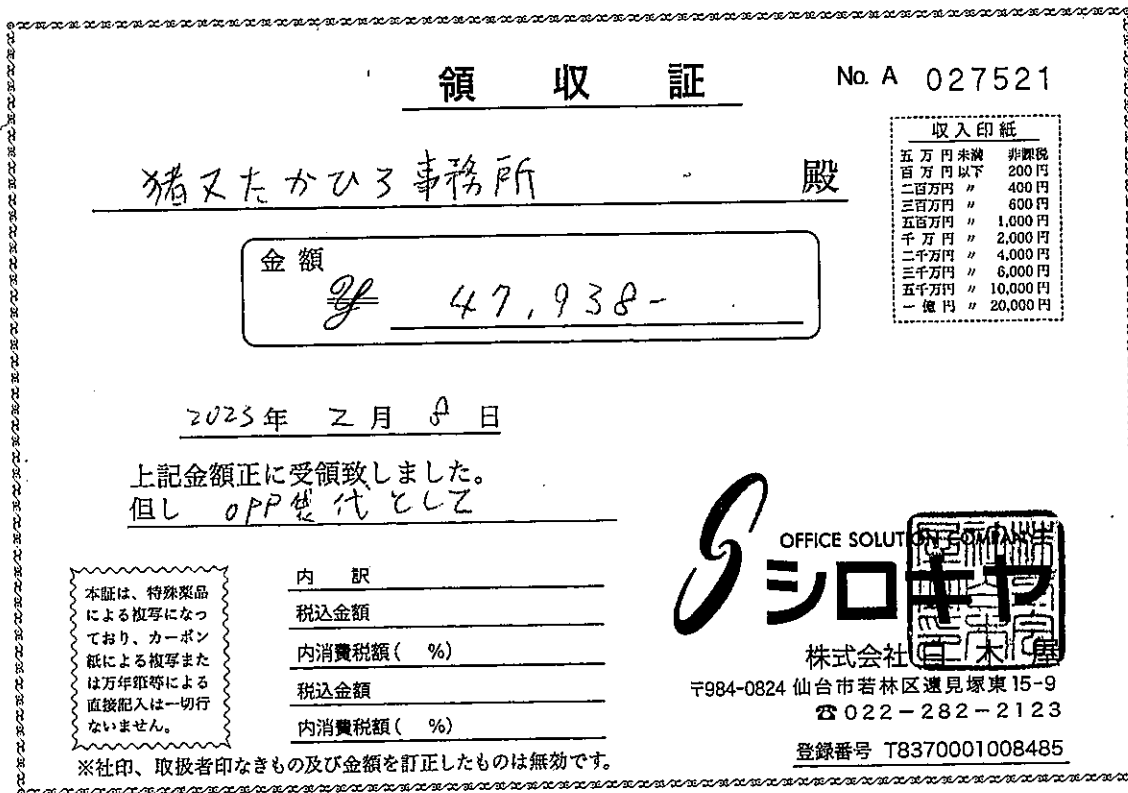 領収証
No. A 027521
収入印紙
五万円未満 非課税
百万円以下 200円
二百万円 〃 400円
三百万円 〃 600円
五百万円 〃 1,000円
千万円 〃 2,000円
二千万円 〃 4,000円
三千万円 〃 6,000円
五千万円 〃 10,000円
一億円 〃 20,000円
猪又たかひろ事務所 殿
金額
¥ 47,938-
2023年 2月 8日
上記金額正に受領致しました。
但し OPP袋代として
本証は、特殊薬品
による複写になっ
ており、カーボン
紙による複写また
は万年筆等による
直接記入は一切行
ないません。
内訳
税込金額
内消費税額( %)
税込金額
内消費税額( %)
※社印、取扱者印なきもの及び金額を訂正したものは無効です。
OFFICE SOLUTION COMPANY
シロキヤ
株式会社 白木屋
〒984-0824 仙台市若林区遠見塚東15-9
☎022-282-2123
登録番号 T8370001008485